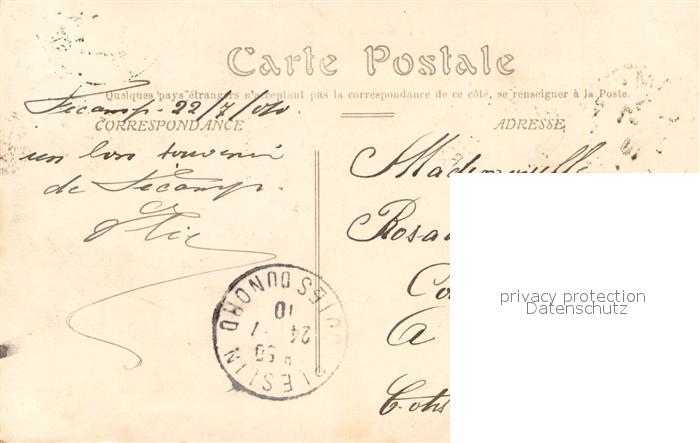 Carte Postale
Quelques pays étrangers n'acceptant pas la correspondance de ce côté, se renseigner à la Poste.
Fécamp 22/7/010
CORRESPONDANCE
un bon souvenir
de Fécamp.
ADRESSE
Mademoiselle
Rosa
A
PLESTIN
CÔTES DU NORD
24 7
10
privacy protection
Datenschutz